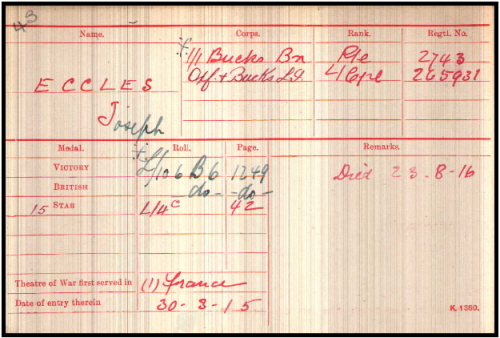 43
Name. Corps. Rank. Regtl. No.
1/1 Bucks Bn Pte 2743
ECCLES Oxf. + Bucks L.I. L/Cpl 265931
Joseph
Medal. Roll. Page. Remarks.
VICTORY L/106 B6 1249 Died 23-8-16
BRITISH -do- -do-
15 STAR L/4c 42
Theatre of War first served in (1) France
Date of entry therein 30-3-15 K.1380.